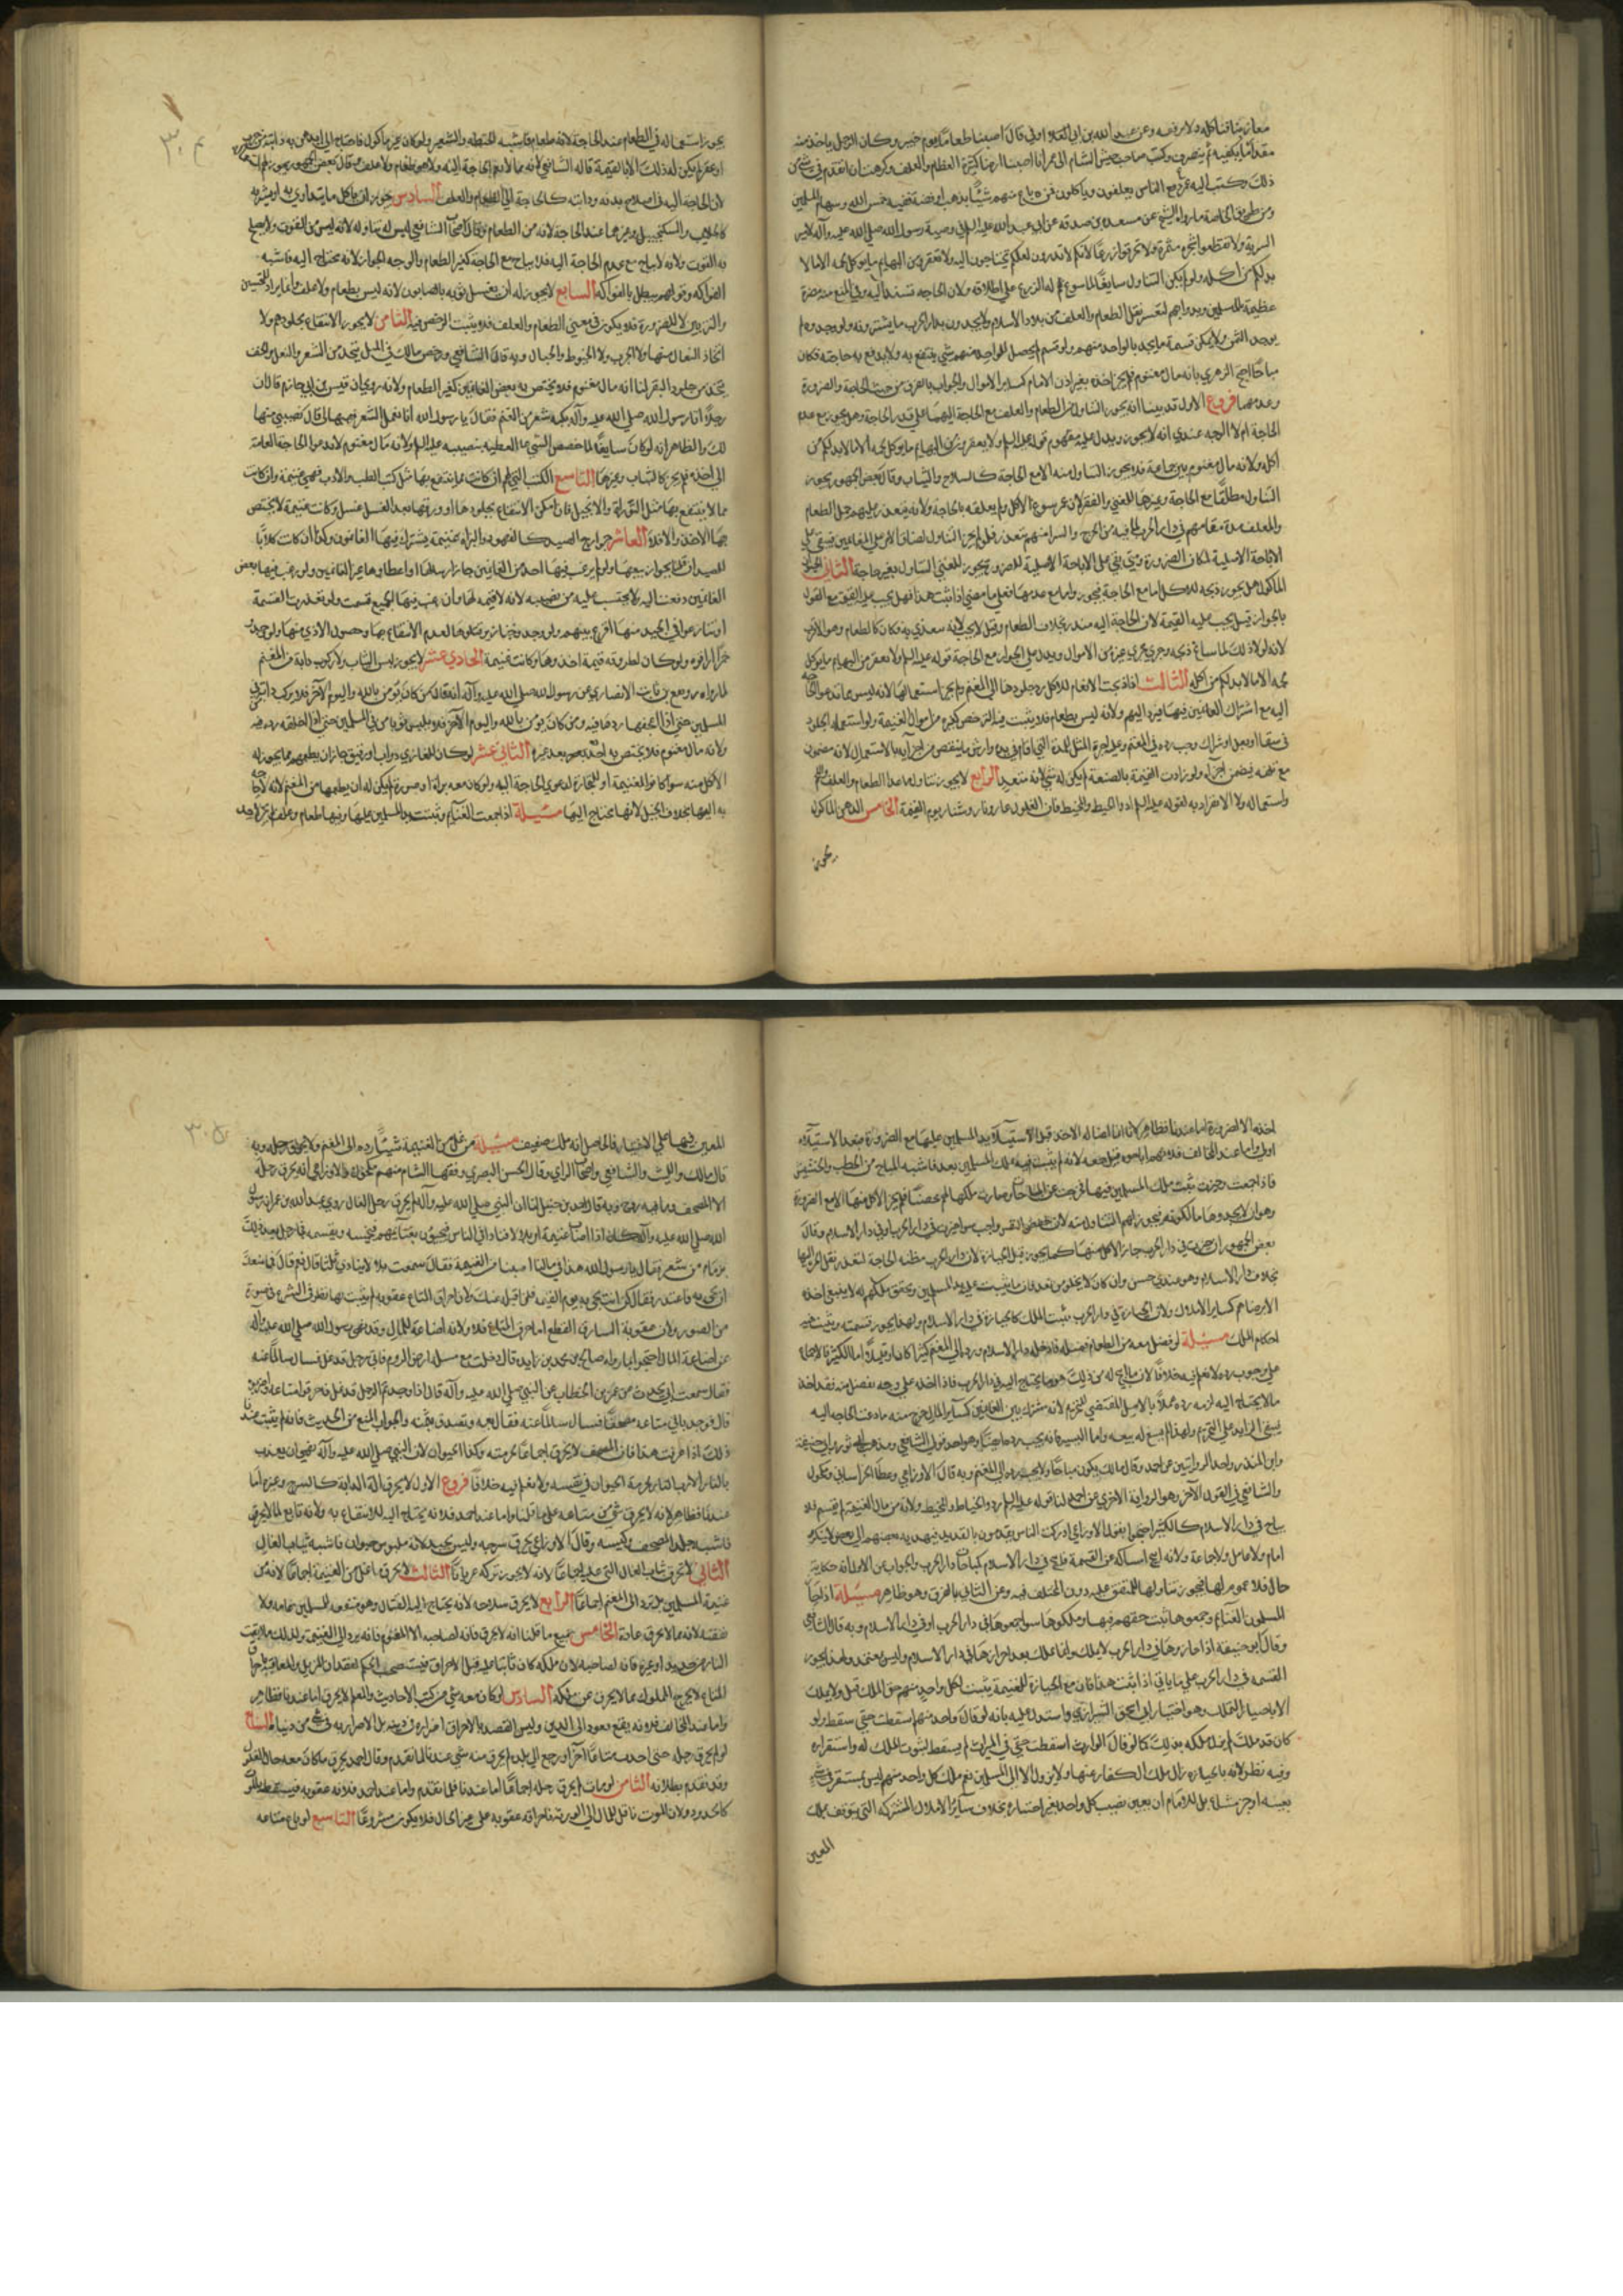 مغازينا فنأكله ولا نرفعه وعن عبد الله بن ابي اوفى قال اصبنا طعاما يوم خيبر وكان الرجل ياخذ منه
مقدار ما يكفيه ثم ينصرف وكتب صاحب جيش الشام الى عمر انا اصبنا ارضا كثيرة الطعام والعلف وكرهت ان اتقدم في شئ من
ذلك فكتب اليه عمر دع الناس يعلفون وياكلون فمن باع منهم شيئا بذهب او فضة ففيه خمس الله وسهام المسلمين
ومن طريق الخاصة ما رواه الشيخ عن مسعدة بن صدقة عن ابي عبد الله عليه السلم في وصية رسول الله صلى الله عليه وآله لامير
السرية ولا تقطعوا شجرة مثمرة ولا تحرقوا زرعا لانكم لا تدرون لعلكم تحتاجون اليه ولا تعقروا من البهائم ما يوكل لحمه الا ما لا
بد لكم من اكله ولو لم يكن التناول سايغا لما سوغ لهم
عظيمة بالمسلمين وبدوابهم لتعسر نقل الطعام والعلف من بلاد الاسلام ولا يجدون بدار الحرب ما يشترونه ولو وجدوه لم
يوجد الثمن ولا يمكن قسمة ما يجده الواحد منهم ولو قسم لم يحصل للواحد منهم شئ ينتفع به ولا يدفع به حاجته فكان
مباحا احتج الزهري بانه مال مغنوم فلم يجز اخذه بغير اذن الامام كساير الاموال والجواب بالفرق من حيث الحاجة والضرورة
وعدمهما فروع الاول قد بينا انه يجوز التناول من الطعام والعلف مع الحاجة اليهما على قدر الحاجة وهل يجوز مع عدم
الحاجة ام لا الوجه عندي انه لا يجوز ويدل عليه مفهوم قوله عليه السلم ولا يعقروا من البهائم ما يوكل لحمه الا ما لا بد لكم من
اكله ولانه مال مغنوم بين جماعة فلا يجوز التناول منه الا مع الحاجة كالسلاح والثياب وقال بعض الجمهور يجوز
التناول مطلقا مع الحاجة وغيرها للغني والفقير لان عمر سوغ الاكل ولم يعلقه بالحاجة ولانه يتعذر عليهم حمل الطعام
والعلف مدة مقامهم في دار الحرب لما فيه من الحرج والشراء منهم متعذر فلو لم يجز التناول لضاق الامر على الغانمين فيبقى على
الاباحة الاصلية لمكان الضرورة ومتى بقي على الاباحة الاصلية للضرورة يجوز للغني التناول بغير حاجة الثاني الحيوان
الماكول هل يجوز ذبحه للاكل اما مع الحاجة فيجوز واما مع عدمها فعلى ما مضى اذا ثبت هذا فهل يجب عليه القيمة مع القول
بالجواز قيل يجب عليه القيمة لان الحاجة اليه تندر بخلاف الطعام وقيل لا يجب لانه مغذي به فكان كالطعام وهو الاقرب
لانه لولا ذلك لما ساغ ذبحه وجرى مجرى غيره من الاموال ويدل على الجواز مع الحاجة قوله عليه السلم ولا تعقروا من البهائم ما يوكل
لحمه الا ما لا بد لكم من اكله الثالث اذا ذبحت الانعام للاكل رد جلودها الى المغنم ولم يجز استعمالها لانه ليس مما تدعو الحاجة
اليه مع اشتراك الغانمين فيها فيرد اليهم ولانه ليس بطعام فلا يثبت فيه الترخص كغيره من اموال الغنيمة ولو استعمل الجلد
في سقاء او نعل او شراك وجب رده في المغنم وعليه اجرة المثل للمدة التي اقام في يده وارش ما ينقص من اجزائه بالاستعمال لانه مضمون
مع تلفه فيضمن اجزاؤه ولو زادت القيمة بالصنعة لم يكن له شئ لانه متعد الرابع لا يجوز تناول ما عدا الطعام والعلف
واستعماله ولا الانفراد به لقوله عليه السلم ادوا الخيط والمخيط فان الغلول عار ونار وشنار يوم القيمة الخامس الدهن الماكول
يجوز
يجوز استعماله في الطعام عند الحاجة لانه طعام فاشبه الحنطة والشعير ولو كان غير ماكول فاحتاج الى ان يدهن به او دابته من جرب
او عقر لم يكن له ذلك الا بالقيمة قاله الشافعي لانه مما لا تعم الحاجة اليه ولا هو طعام ولا علف وقال بعض الجمهور يجوز
لان الحاجة اليه في اصلاح بدنه ودابته كالحاجة الى الطعام والعلف السادس يجوز ان ياكل ما يتداوى به او يشربه
كالجلاب والسكنجبيل وغيرهما عند الحاجة لانه من الطعام وقال اصحاب الشافعي ليس له تناوله لانه ليس من القوت ولا يصلح
به القوت ولانه لا يباح مع عدم الحاجة اليه فلا يباح مع الحاجة كغير الطعام والوجه الجواز لانه محتاج اليه فاشبه
الفواكه وقولهم يبطل بالفواكه السابع لا يجوز له ان يغسل ثوبه بالصابون لانه ليس بطعام ولا علف وانما يراد للتحسين
والتزيين لا للضرورة فلا يكون في معنى الطعام والعلف فلا يثبت الرخص فيه الثامن لا يجوز الانتفاع بجلودهم ولا
اتخاذ النعال منها ولا الجرب ولا الخيوط والحبال وبه قال الشافعي ورخص مالك في الحبل يتخذ من الشعر والنعل والخف
يتخذ من جلود البقر لنا انه مال مغنوم فلا يختص به بعض الغانمين كغير الطعام ولانه روي ان قيس بن ابي حازم قال ان
رجلا اتى رسول الله صلى الله عليه وآله بكبة شعر من الغنم فقال يا رسول الله انا نعمل الشعر فهبها لي قال نصيبي منها
لك والظاهر انه لو كان سايغا لما خصص النبي عليه السلم العطية بنصيبه عليه السلم ولانه مال مغنوم لا تدعو الحاجة العامة
الى اخذه فلم يجز كالثياب وغيرها التاسع الكتب التي لهم ان كانت مما ينتفع بها مثل كتب الطب والادب فهي غنيمة وان كانت
مما لا ينتفع بها مثل التورية والانجيل فان امكن الانتفاع بجلودها او ورقها بعد الغسل غسل وكانت غنيمة لا يختص
بها الاخذ والا فلا العاشر جوارح الصيد كالفهود والبزاة غنيمة يشترك فيها الغانمون وكذا ان كانت كلابا
للصيد ان قلنا بجواز بيعها ولو لم يرغب فيها احد من الغانمين جاز ارسالها واعطاوها غير الغانمين ولو رغب فيها بعض
الغانمين دفعت اليه ولا يحتسب عليه من نصيبه لانه لا قيمة لها وان رغب فيها الجميع قسمت ولو تعذرت القسمة
او تنازعوا في الجيد منها اقرع بينهم ولو وجد خنازير قتلوها لعدم الانتفاع بها وحصول الاذى منها ولو وجدوا
خمرا اراقوه ولو كان لظروفه قيمة اخذوها وكانت غنيمة الحادي عشر لا يجوز لبس الثياب ولا ركوب دابة من المغنم
لما رواه رويفع بن ثابت الانصاري عن رسول الله صلى الله عليه وآله انه قال من كان يؤمن بالله واليوم الآخر فلا يركب دابة من فئ
المسلمين حتى اذا اعجفها ردها فيه ومن كان يؤمن بالله واليوم الآخر فلا يلبس ثوبا من فئ المسلمين حتى اذا اخلقه رده فيه
ولانه مال مغنوم فلا يختص به احدهم بعد غيره الثاني عشر لو كان للغازي دواب او رقيق جاز ان يطعمهم مما يجوز له
الاكل منه سواء كانوا للغنيمة او للتجارة لدعوى الحاجة اليه ولو كان معه بزاة او صقورة لم يكن له ان يطعمها من المغنم لانه لا حاجة
به اليها بخلاف الخيل لانها يحتاج اليها مسئلة اذا جمعت الغنائم وثبتت يد المسلمين عليها وفيها طعام وعلف لم يجز لاحد
اخذه الا لضرورة اما عندنا فظاهر لانا انما اخذنا له الاخذ قبل الاستيلاء بيد المسلمين عليها مع الضرورة فبعد الاستيلاء
اولى واما عند المخالف فلانهم اباحوه قبل جمعه لانه لم يثبت فيه ملك المسلمين بعد فاشبه المباح من الحطب والحشيش
فاذا جمعت وحيزت ثبت ملك المسلمين فيها فخرجت عن المباحات وصارت ملكها لهم محضا فلم يجز الاكل منها الا مع الضرورة
وهو ان لا يجدوا ما ياكلونه فيجوز لهم التناول منه لان حفظ النفس واجب سواء حيزت في دار الحرب او في دار الاسلام وقال
بعض الجمهور ان حيزت في دار الحرب جاز الاكل منها كما يجوز قبل الحيازة لان دار الحرب مظنة الحاجة لتعذر نقل الميرة اليها
بخلاف دار الاسلام وهو عندي حسن وان كان لا يخلو من بعد فان ما يثبت عليه يد المسلمين وتحقق ملكهم له لا ينبغي اخذه
الا برضاهم كساير الاملاك ولان الحيازة في دار الحرب تثبت الملك كالحيازة في دار الاسلام ولهذا يجوز قسمته ويثبت فيه
احكام الملك مسئلة لو فضل معه من الطعام فضلة فادخله دار الاسلام رده الى المغنم كثيرا كان او قليلا اما الكثير فالاجماع
على وجوب رده لا نعلم فيه خلافا لان ما ابيح له من ذلك هو ما يحتاج اليه في دار الحرب فاذا اخذه على وجه يفضل منه فقد اخذ
ما لا يحتاج اليه لزمه رده عملا بالاصل المقتضي للتحريم لانه مشترك بين الغانمين كساير المال خرج منه ما دعت الحاجة اليه
يبقى الزايد على التحريم ولهذا لم يسغ له بيعه واما اليسير فانه يجب رده ايضا وهو احد قولي الشافعي ومذهب ابي ثور وابي حنيفة
وابن المنذر واحد الروايتين عن احمد وقال مالك يكون مباحا ولا يجب رده الى المغنم وبه قال الاوزاعي وعطا الخراساني ومكحول
والشافعي في القول الآخر وهو الرواية الاخرى عن احمد لنا قوله عليه السلم ردوا الخياط والمخيط ولانه من مال الغنيمة لم يقسم فلا
يباح في دار الاسلام كالكثير احتجوا بقول الاوزاعي ادركت الناس يقدمون بالقديد فيهديه بعضهم الى بعض لا ينكره
امام ولا عامل ولا جماعة ولانه ابيح امساكه عن القسمة فابيح في دار الاسلام كمباحات دار الحرب والجواب عن الاول انه حكاية
حال فلا عموم لها فيجوز تناولها للمتفق عليه دون المختلف فيه وعن الثاني بالفرق وهو ظاهر مسئلة اذا احاز
المسلمون الغنائم وجمعوها ثبت حقهم فيها وملكوها سواء جمعوها في دار الحرب او في دار الاسلام وبه قال الشافعي
وقال ابو حنيفة اذا حازوها في دار الحرب لا يملك وانما يملك بعد احرازها في دار الاسلام وليس بمعتمد ولهذا يجوز
القسمة في دار الحرب على ما ياتي اذا ثبت هذا فان مع الحيازة للغنيمة يثبت لكل واحد منهم حق الملك قيل ولا يملك
الا باختيار التملك وهو اختيار ابي اسحق الشيرازي واستدل عليه بانه لو قال واحد منهم اسقطت حقي سقط ولو
كان قد ملك لم يزل ملكه بذلك كما لو قال الوارث اسقطت حقي في الميراث لم يسقط لثبوت الملك له واستقراره
وفيه نظر لانه بالحيازة زال ملك الكفار عنها ولا يزول الا الى المسلمين نعم ملك كل واحد منهم ليس بمستقر في شئ
بعينه او جزء مشاع بل للامام ان يعين نصيب كل واحد بغير اختياره بخلاف ساير الاملاك المشتركة التي يتوقف ملك
المعين
المعين فيها على الاختيار فالحاصل انه ملك ضعيف مسئلة من غل من الغنيمة شيئا رده الى المغنم ولا يحرق رحله وبه
قال مالك والليث والشافعي واصحاب الراي وقال الحسن البصري وفقهاء الشام منهم مكحول والاوزاعي انه يحرق رحله
الا المصحف وما فيه روح وبه قال احمد بن حنبل لنا ان النبي صلى الله عليه وآله لم يحرق رحل الغال روى عبد الله بن عمر ان رسول
الله صلى الله عليه وآله كان اذا اصاب غنيمة امر بلالا فنادى في الناس فيجيئون بغنائمهم فيخمسه ويقسمه فجاء رجل بعد ذلك
بزمام من شعر فقال يا رسول الله هذا فيما كنا اصبنا من الغنيمة فقال سمعت بلالا ينادي ثلثا قال نعم قال فما منعك
ان تجئ به فاعتذر فقال كن انت تجئ به يوم القيمة فلن اقبله عنك ولان احراق المتاع عقوبة لم يثبت لها نظير في الشرع في صورة
من الصور ولان عقوبة السارق القطع اما حرق المتاع فلا ولانه اضاعة للمال وقد نهى رسول الله صلى الله عليه وآله
عن اضاعة المال احتجوا بما رواه صالح بن محمد بن زايدة قال دخلت مع مسلمة ارض الروم فاتي برجل قد غل فسال سالما عنه
فقال سمعت ابي يحدث عن عمر بن الخطاب عن النبي صلى الله عليه وآله قال اذا وجدتم الرجل قد غل فاحرقوا متاعه واضربوه
قال فوجدنا في متاعه مصحفا فسال سالما عنه فقال بعه وتصدق بثمنه والجواب المنع من الحديث فانه لم يثبت عندنا
ذلك اذا عرفت هذا فان المصحف لا يحرق اجماعا لحرمته وكذا الحيوان لان النبي صلى الله عليه وآله نهى ان يعذب
بالنار الا ربها ولحرمة الحيوان في نفسه ولا نعلم فيه خلافا فروع الاول لا يحرق آلة الدابة كالسرج وغيره اما
عندنا فظاهر لانه لا يحرق شئ من متاعه على ما قلنا واما عند احمد فلانه يحتاج اليه للانتفاع به ولانه تابع لما لا يحرق
فاشبه جلد المصحف وكيسه وقال الاوزاعي يحرق سرجه وليس بجيد لانه ملبوس حيوان فاشبه ثياب الغال
الثاني لا تحرق ثياب الغال التي عليه اجماعا لانه لا يجوز تركه عريانا الثالث لا يحرق ما غل من الغنيمة اجماعا لانه من
غنيمة المسلمين بل يرد الى المغنم اجماعا الرابع لا يحرق سلاحه لانه يحتاج اليه للقتال وهو منفعة للمسلمين عامة ولا
نفقته لانه مما لا يحرق عادة الخامس جميع ما قلنا انه لا يحرق فانه لصاحبه الا المغنوم فانه يرد الى الغنيمة وكذلك ما ابقت
النار من حديد او غيره فانه لصاحبه لان ملكه كان ثابتا عليه قبل الاحراق فيستصحب الحكم لفقدان المزيل والمعاقبة باحراق
المتاع لا يخرج المملوك مما لا يحرق عن ملكه السادس لو كان معه شئ من كتب الاحاديث والعلم لا يحرق اما عندنا فظاهر
واما عند المخالف فلانه يقع نفع يعود الى الدين وليس القصد بالاحراق اضراره في دينه بل الاضرار به في شئ من دنياه السابع
لو لم يحرق رحله حتى احدث متاعا آخر او رجع الى بلده لم يحرق منه شئ عندنا لما تقدم وقال احمد يحرق ما كان معه حال الغلول
وقد تقدم بطلانه الثامن لو مات لم يحرق رحله اجماعا اما عندنا فلما تقدم واما عند احمد فلانه عقوبة فيسقط بالموت
كالحدود ولان الموت ناقل للمال الى الورثة فاحراقه عقوبة على غير الحال فلا يكون مشروعا التاسع لو باع متاعه